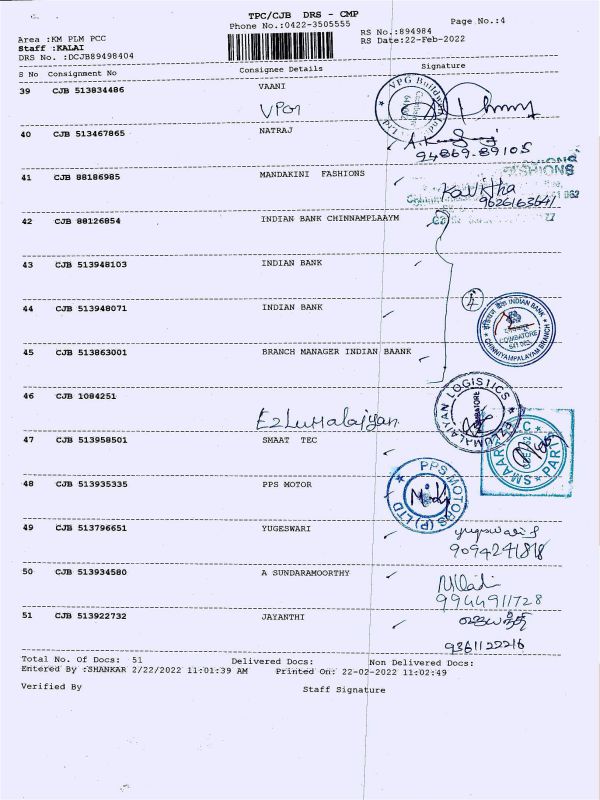 TPC/CJB DRS - CMP
Phone No.:0422-3505555
Page No.:4
Area :KM PLM PCC
RS No.:894984
Staff :KALAI
RS Date:22-Feb-2022
DRS No. :DCJB89498404
S No Consignment No Consignee Details Signature
39 CJB 513834486 VAANI
VPG
40 CJB 513467865 NATRAJ
94869-89105
41 CJB 88186985 MANDAKINI FASHIONS
Kavitha
9626163641
42 CJB 88126854 INDIAN BANK CHINNAMPLAAYM
43 CJB 513948103 INDIAN BANK
44 CJB 513948071 INDIAN BANK
INDIAN BANK
COIMBATORE
CHINNIYAMPALAYAM BRANCH
45 CJB 513863001 BRANCH MANAGER INDIAN BAANK
46 CJB 1084251
Ezlumalaiyan
EZLUMALAIYAN LOGISTICS
47 CJB 513958501 SMAAT TEC
48 CJB 513935335 PPS MOTOR
PPS MOTORS (P) LTD
49 CJB 513796651 YUGESWARI
9094241818
50 CJB 513934580 A SUNDARAMOORTHY
9944911728
51 CJB 513922732 JAYANTHI
ஜெயந்தி
9361122216
Total No. Of Docs: 51 Delivered Docs: Non Delivered Docs:
Entered By :SHANKAR 2/22/2022 11:01:39 AM Printed On: 22-02-2022 11:02:49
Verified By Staff Signature